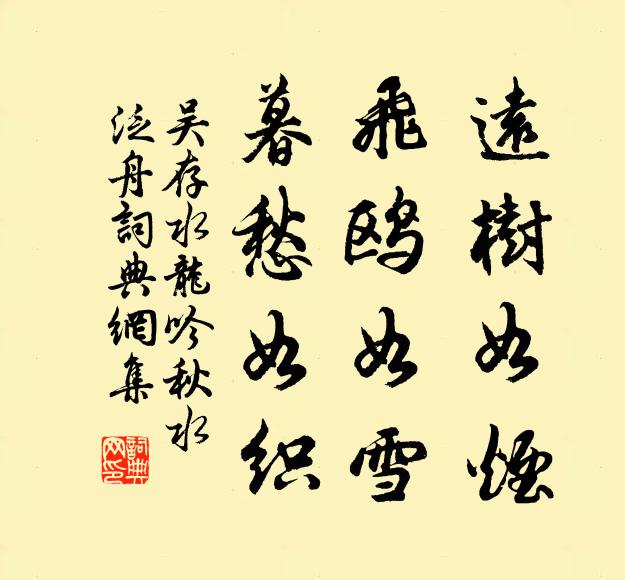 遠樹如煙
飛鸥如雪
暮愁如织
吴存水龍吟秋水
泛舟詞典網集
詞典
网印